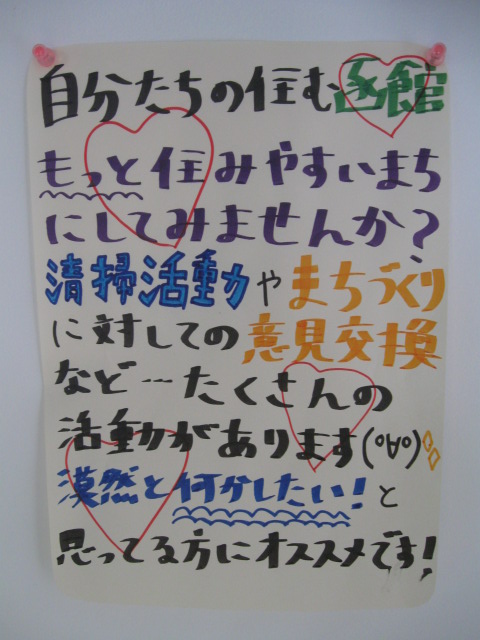 自分たちの住む函館
もっと住みやすいまち
にしてみませんか?
清掃活動やまちづくり
に対しての意見交換
など…たくさんの
活動があります(°∀°)
漠然と何かしたい!と
思ってる方にオススメです!